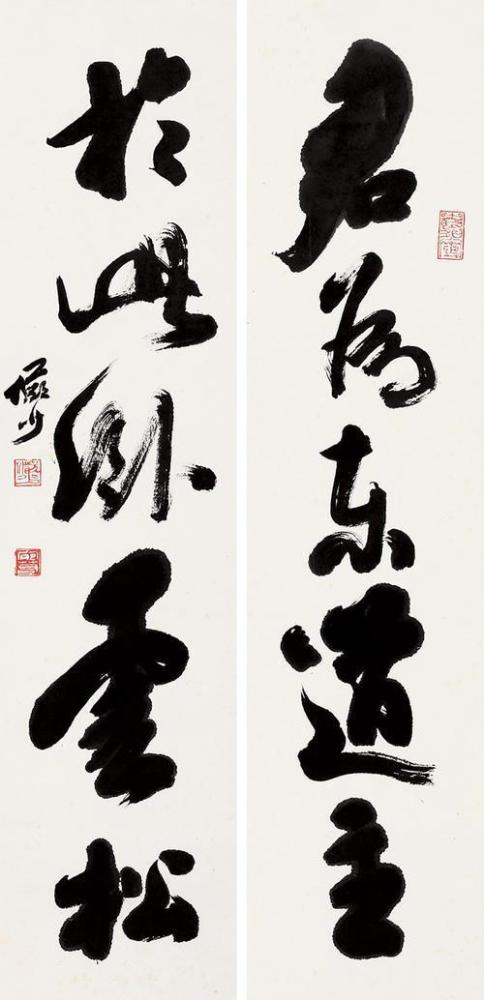 君為東道主
於此臥雲松